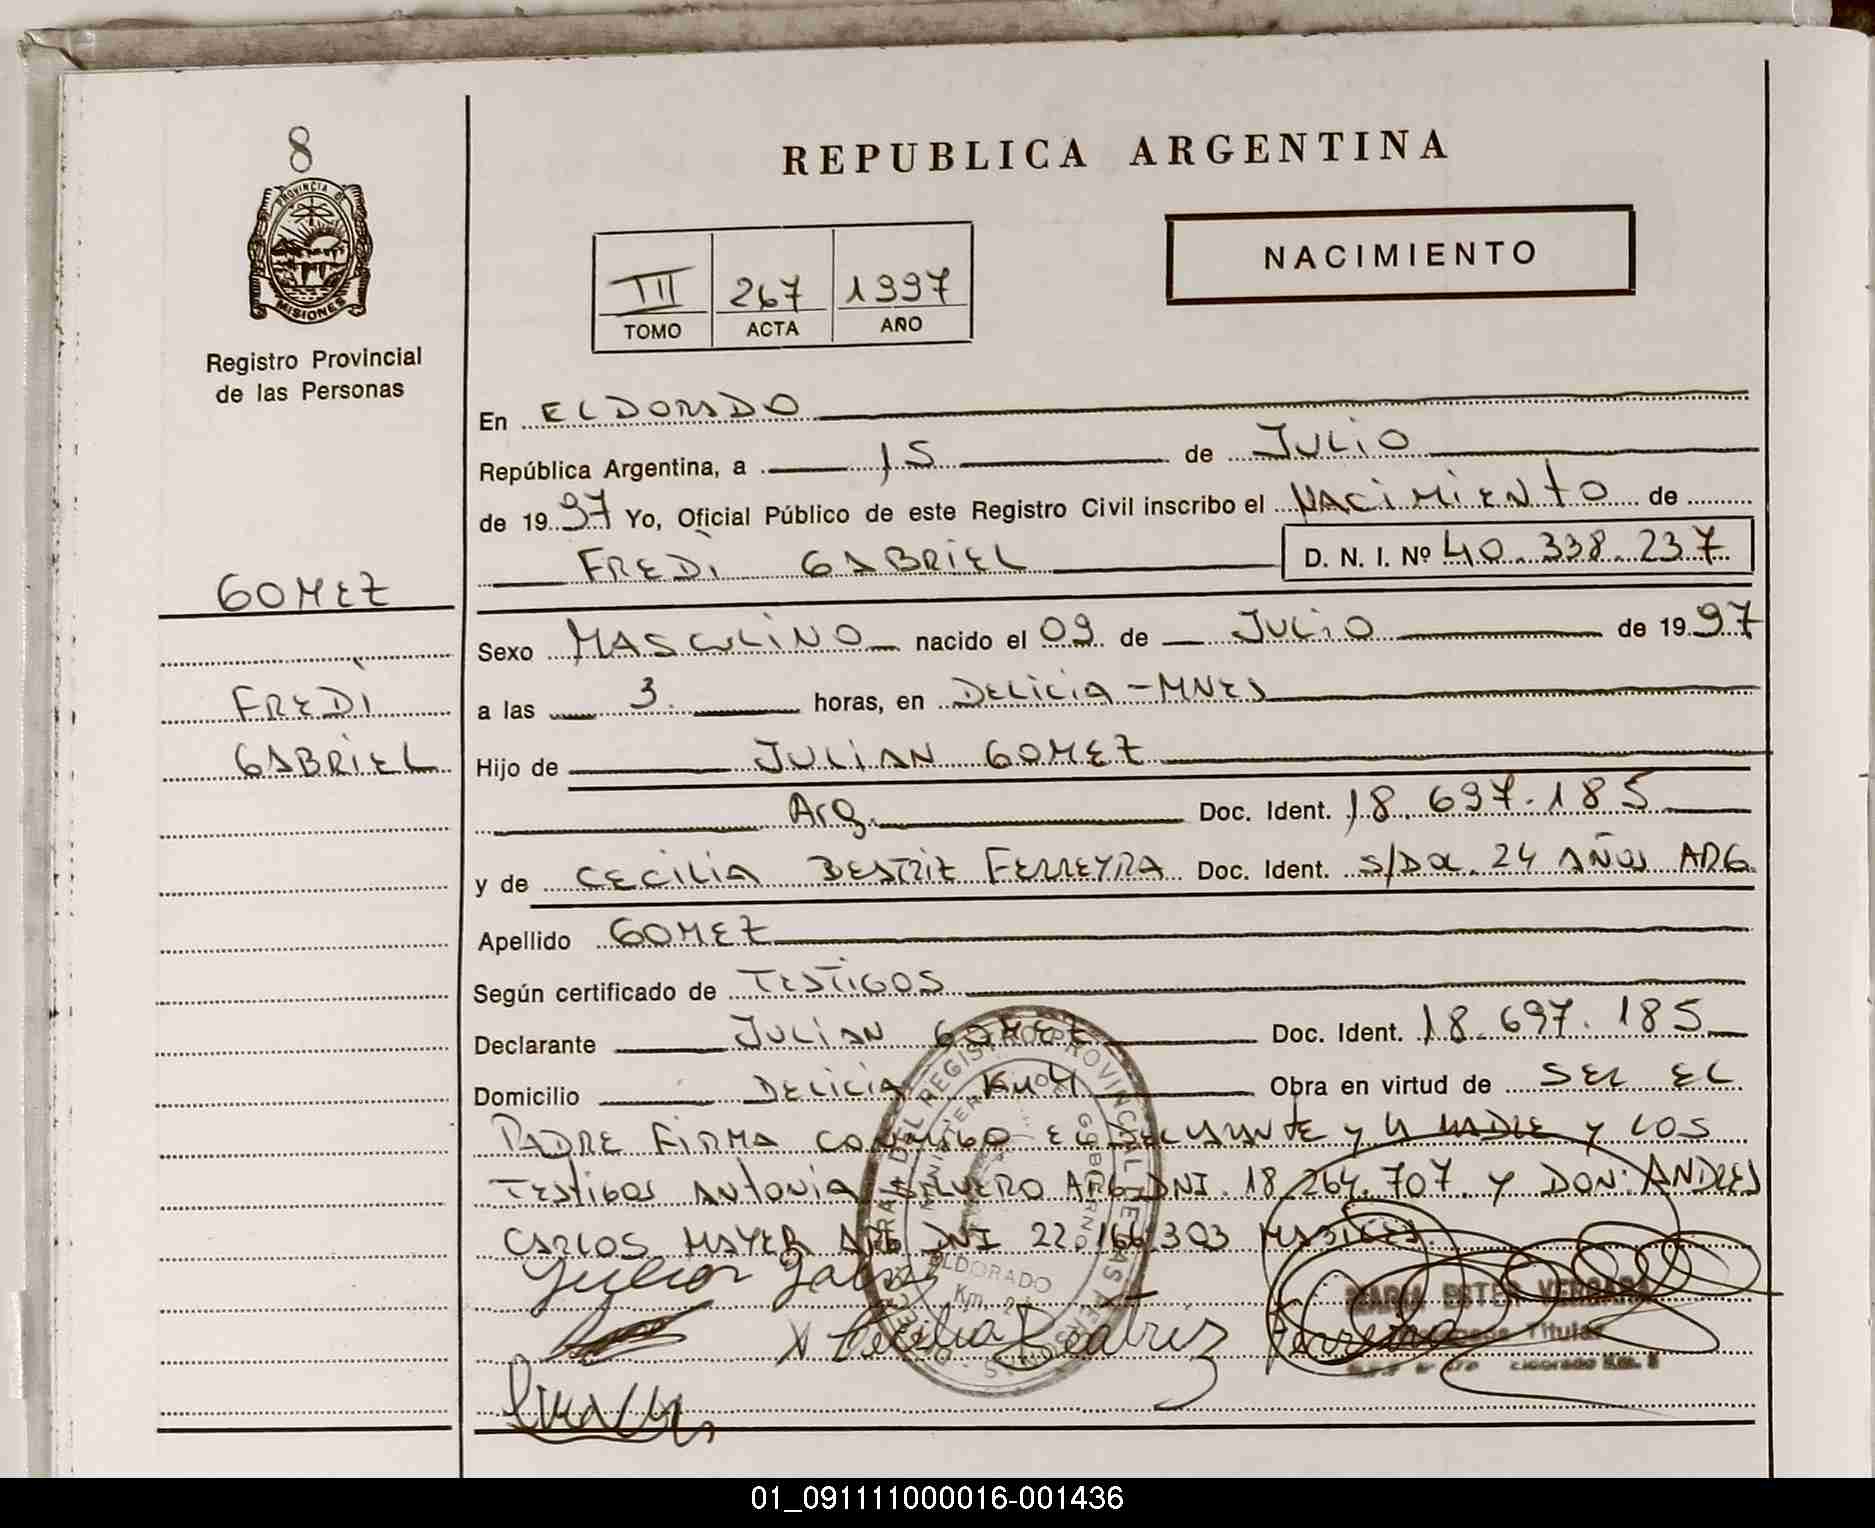 8
PROVINCIA DE
MISIONES
Registro Provincial
de las Personas
REPUBLICA ARGENTINA
NACIMIENTO
III 267 1997
TOMO ACTA AÑO
En ELDORADO
República Argentina, a 15 de JULIO
de 1997 Yo, Oficial Público de este Registro Civil inscribo el NACIMIENTO de
FREDI GABRIEL D. N. I. Nº 40.338.237
GOMEZ
FREDI
GABRIEL
Sexo MASCULINO nacido el 09 de JULIO de 1997
a las 3 horas, en DELICIA - MNES
Hijo de JULIAN GOMEZ
Arg. Doc. Ident. 18.697.185
y de CECILIA BEATRIZ FERREYRA Doc. Ident. S/Doc. 24 AÑOS ARG.
Apellido GOMEZ
Según certificado de TESTIGOS
Declarante JULIAN GOMEZ Doc. Ident. 18.697.185
Domicilio DELICIA Km 4 Obra en virtud de SER EL
PADRE FIRMA CONMIGO EL DECLARANTE y LA MADRE y LOS
TESTIGOS ANTONIA ARG DNI. 18.264.707. y DON: ANDRES
CARLOS MAYER ARG DNI 22.166.303
DEL REGISTRO PROVINCIAL DE LAS PERSONAS
MINISTERIO DE GOBIERNO
ELDORADO
Km.
Julian Gomez
x Cecilia Beatriz Ferreira
MARIA ESTER VERGARA
Titular
Eldorado Km.
01_091111000016-001436